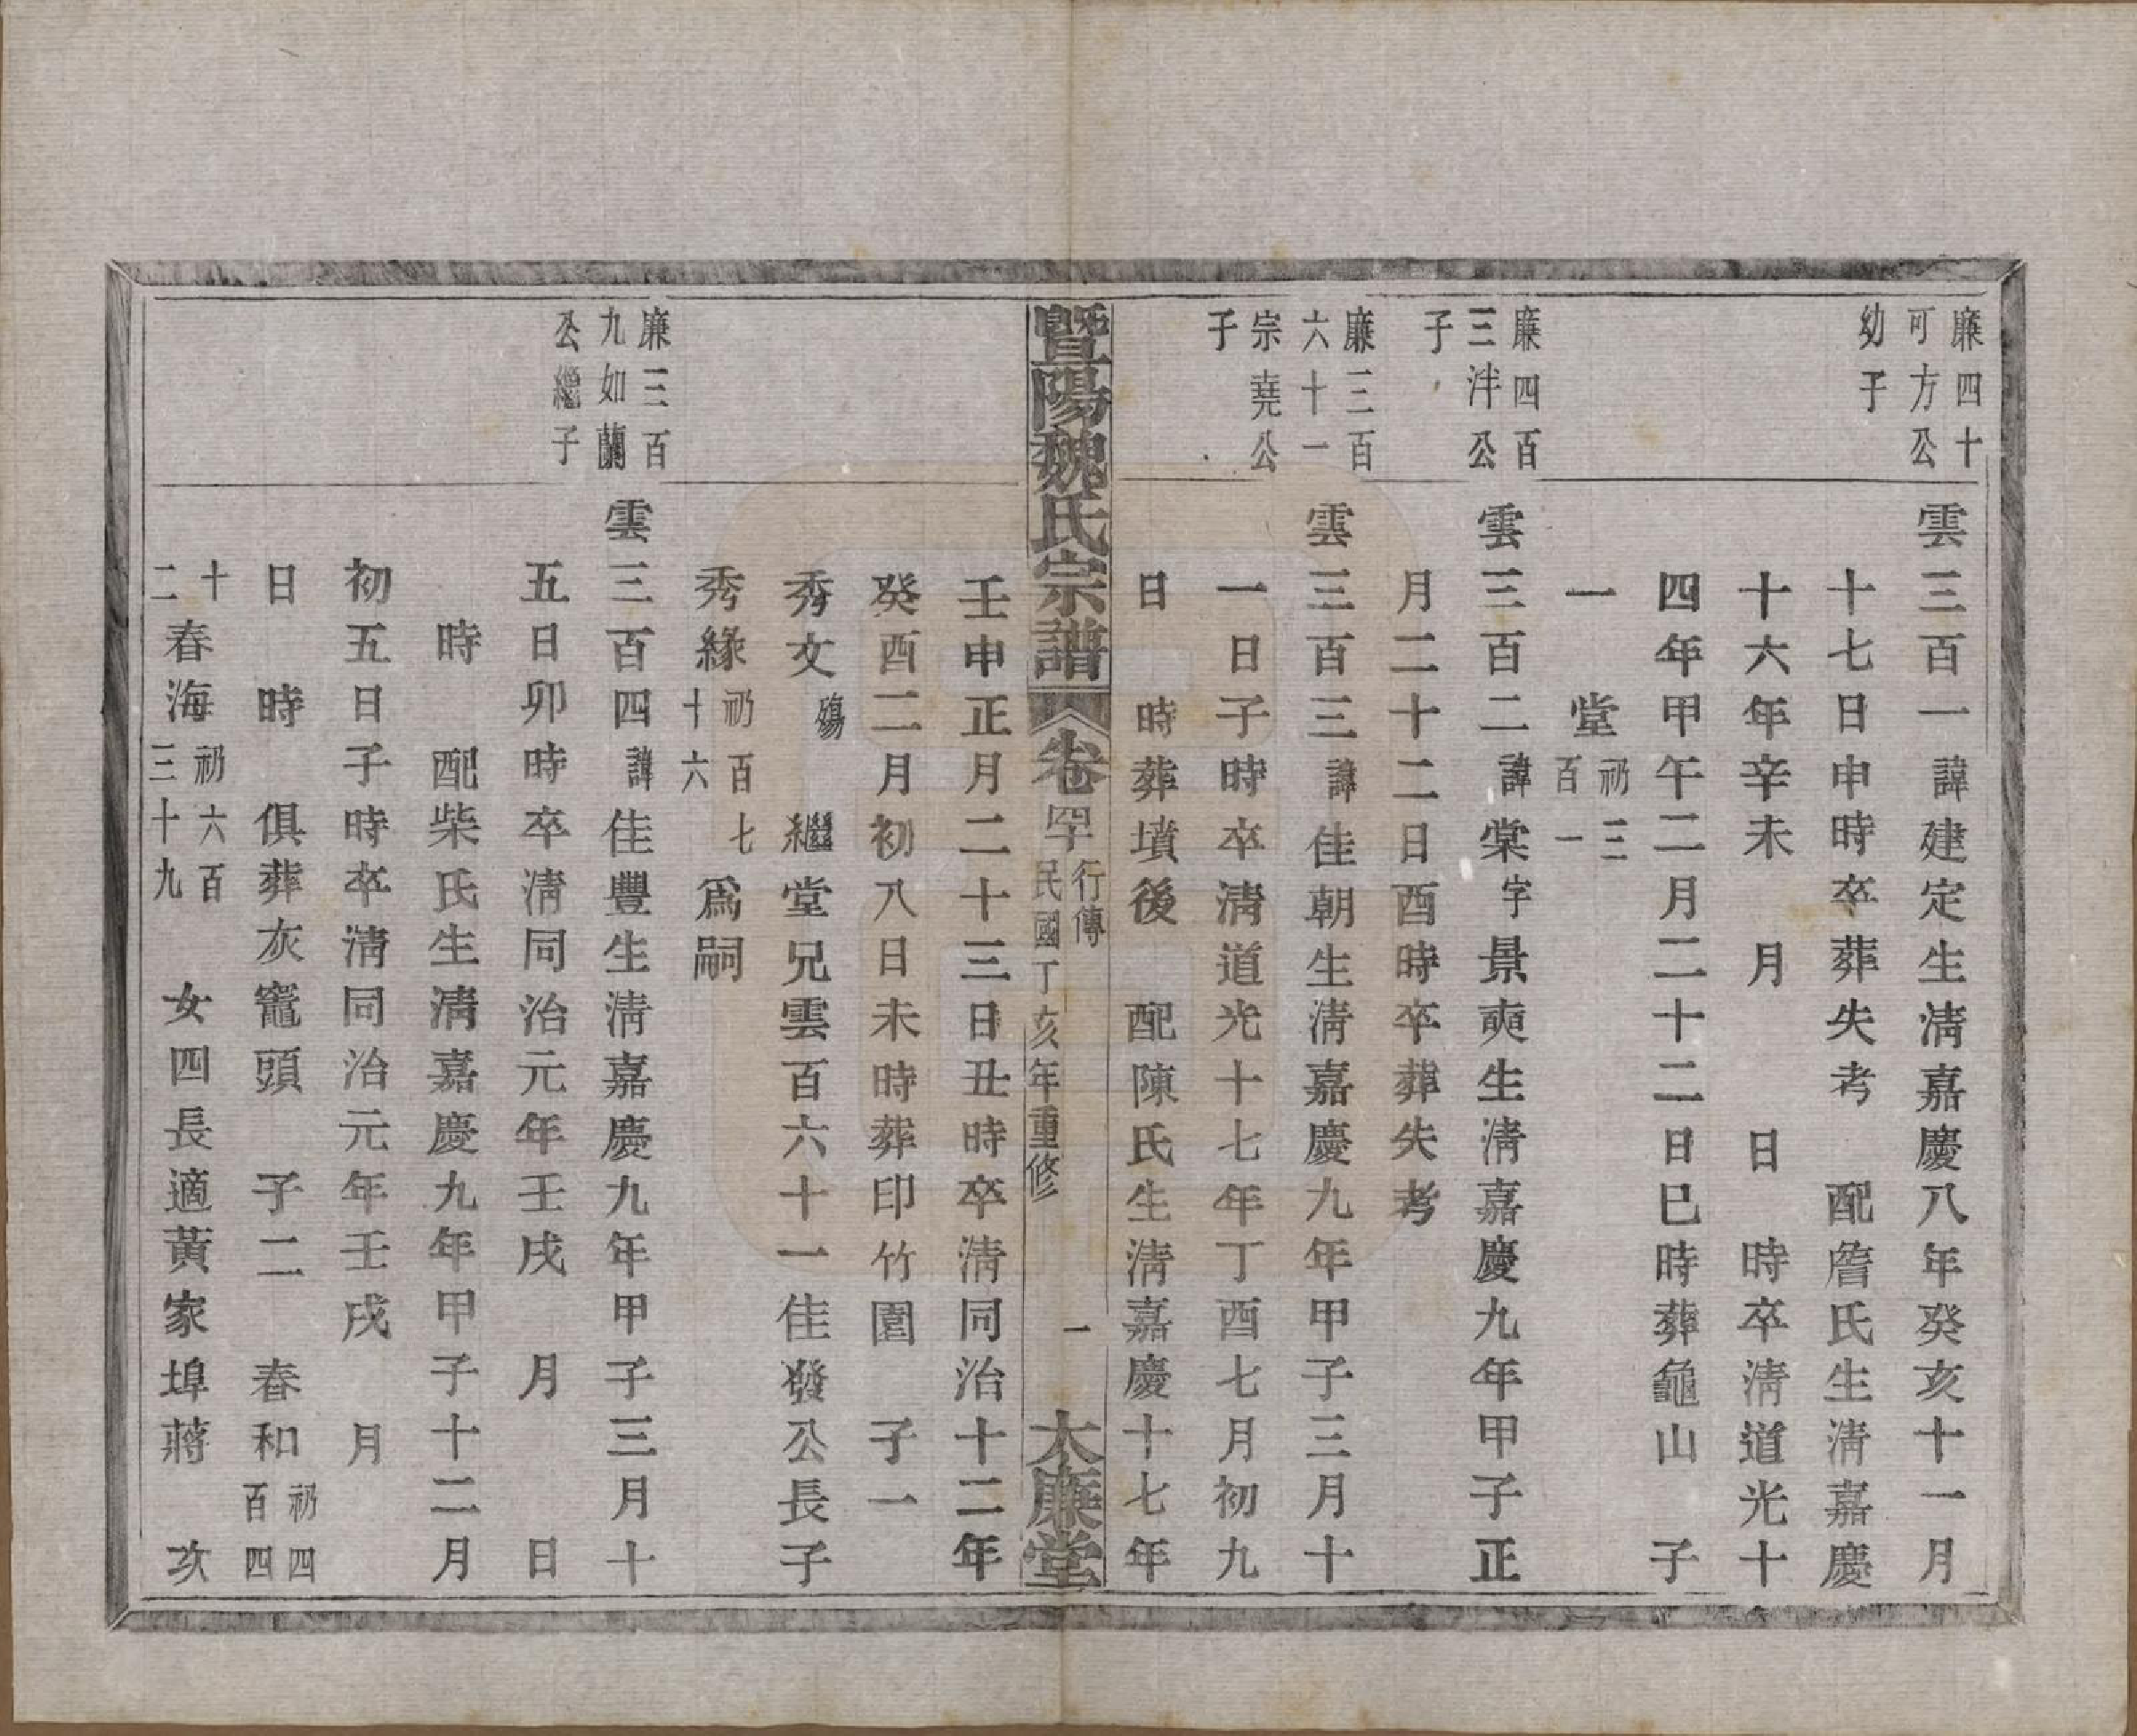 廉四十
可方公
幼子
雲三百一諱建定生淸嘉慶八年癸亥十一月
十七日申時卒葬失考 配詹氏生淸嘉慶
十六年辛未 月 日 時卒淸道光十
四年甲午二月二十二日巳時葬龜山 子
一 堂祁三百一
廉四百
三泮公
子
雲三百二諱棠字景奭生淸嘉慶九年甲子正
月二十二日酉時卒葬失考
廉三百
六十一
宗堯公
子
雲三百三諱佳朝生淸嘉慶九年甲子三月十
一日子時卒淸道光十七年丁酉七月初九
日 時葬墳後 配陳氏生淸嘉慶十七年
暨陽魏氏宗譜 卷四 行傳 民國丁亥年重修 一 大廉堂
壬申正月二十三日丑時卒淸同治十二年
癸酉二月初八日未時葬印竹園 子一
秀文殤 繼堂兄雲百六十一佳發公長子
秀緣祁百七十六爲嗣
廉三百
九如蘭
公繼子
雲三百四諱佳豐生淸嘉慶九年甲子三月十
五日卯時卒淸同治元年壬戌 月 日
時 配柴氏生淸嘉慶九年甲子十二月
初五日子時卒淸同治元年壬戌 月
日 時 俱葬灰竈頭 子二 春和祁四百四
十二春海祁六百三十九 女四長適黃家埠蔣 次